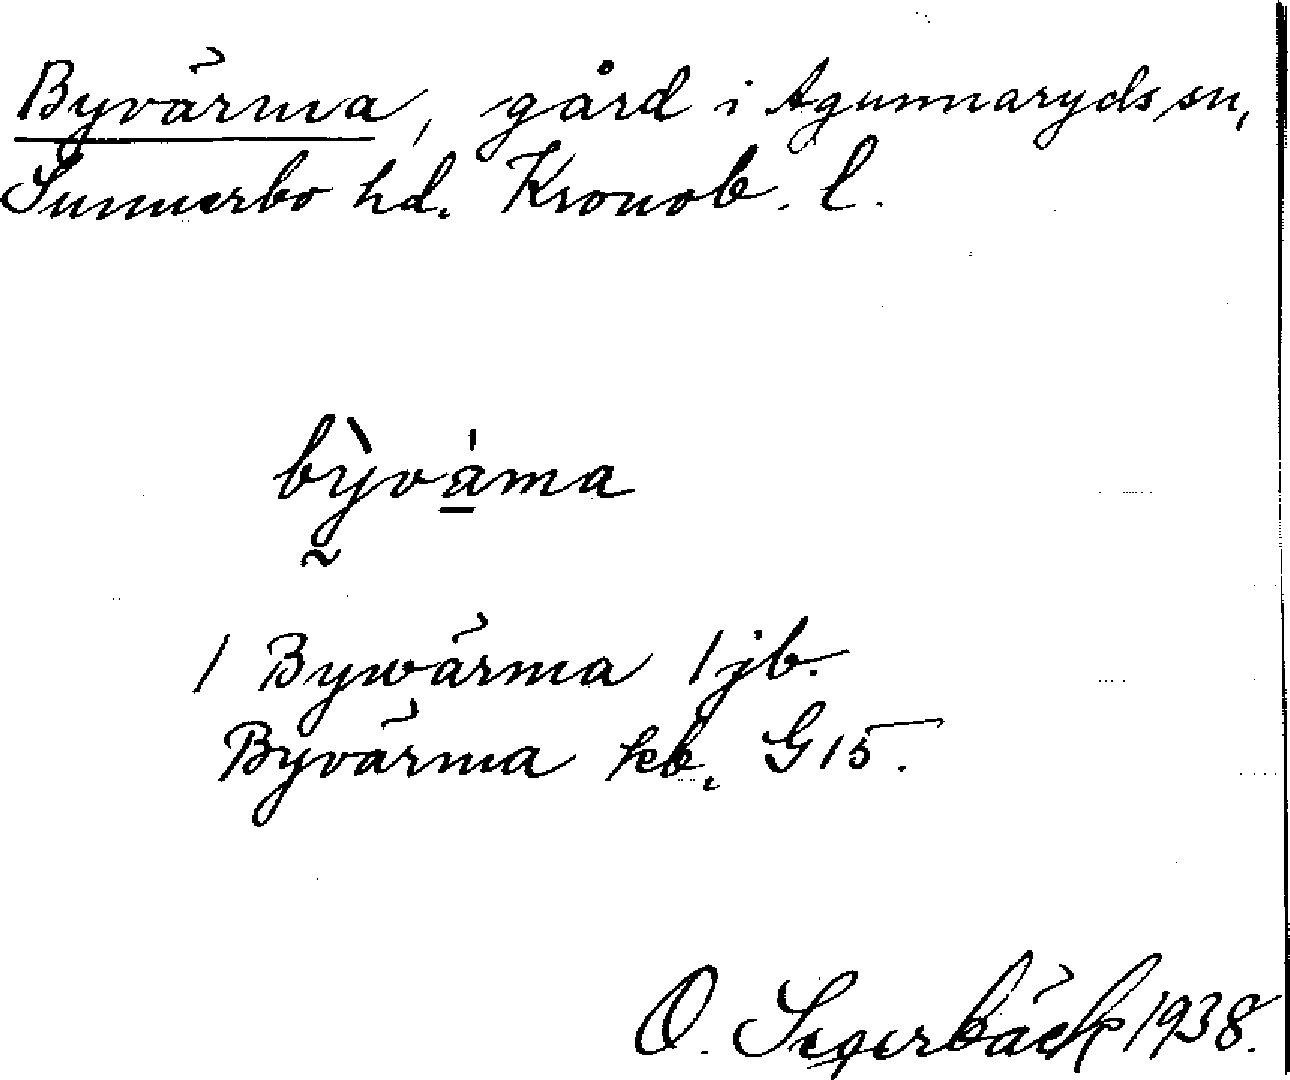 Byvärma, gård i Agunnaryds sn,
Sunnerbo hd. Kronob. l.
bỳváma
1 Bywärma 1 jb.
Byvärma kb. G15.
O. Segerbäck 1938.